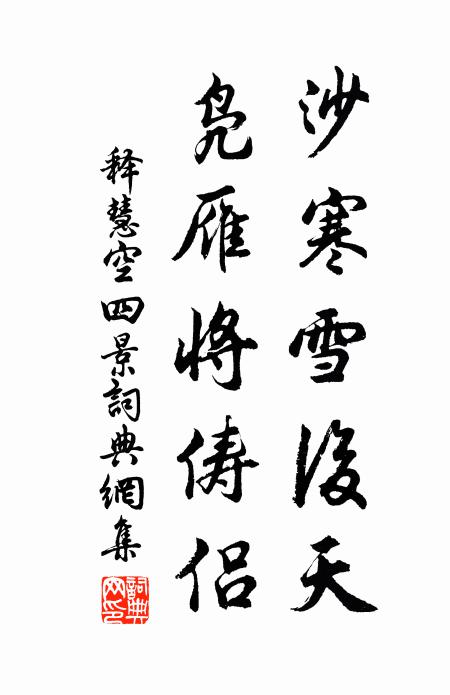 沙寒雪後天
凫雁將俦侶
释慧空四景詞典網集
詞典网印